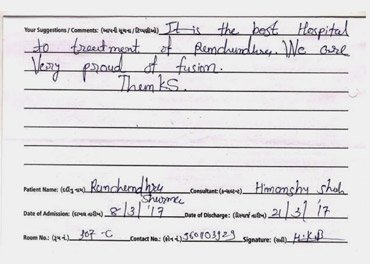 Your Suggestions / Comments: (આપની સૂચના / ટિપ્પણીઓ) It is the best Hospital
to treetment of Ramchundhre. We are
Very proud of fusion.
Thenks.
Patient Name: (દર્દીનું નામ) Ramchemdhre Consultant: Himanshy shah
Shermee
Date of Admission: (દાખલ તારીખ) 8/3/'17 Date of Discharge: 21/3/'17
Room No.: (રૂમ નં.) 307-C Contact No.: Signature: (સહી)